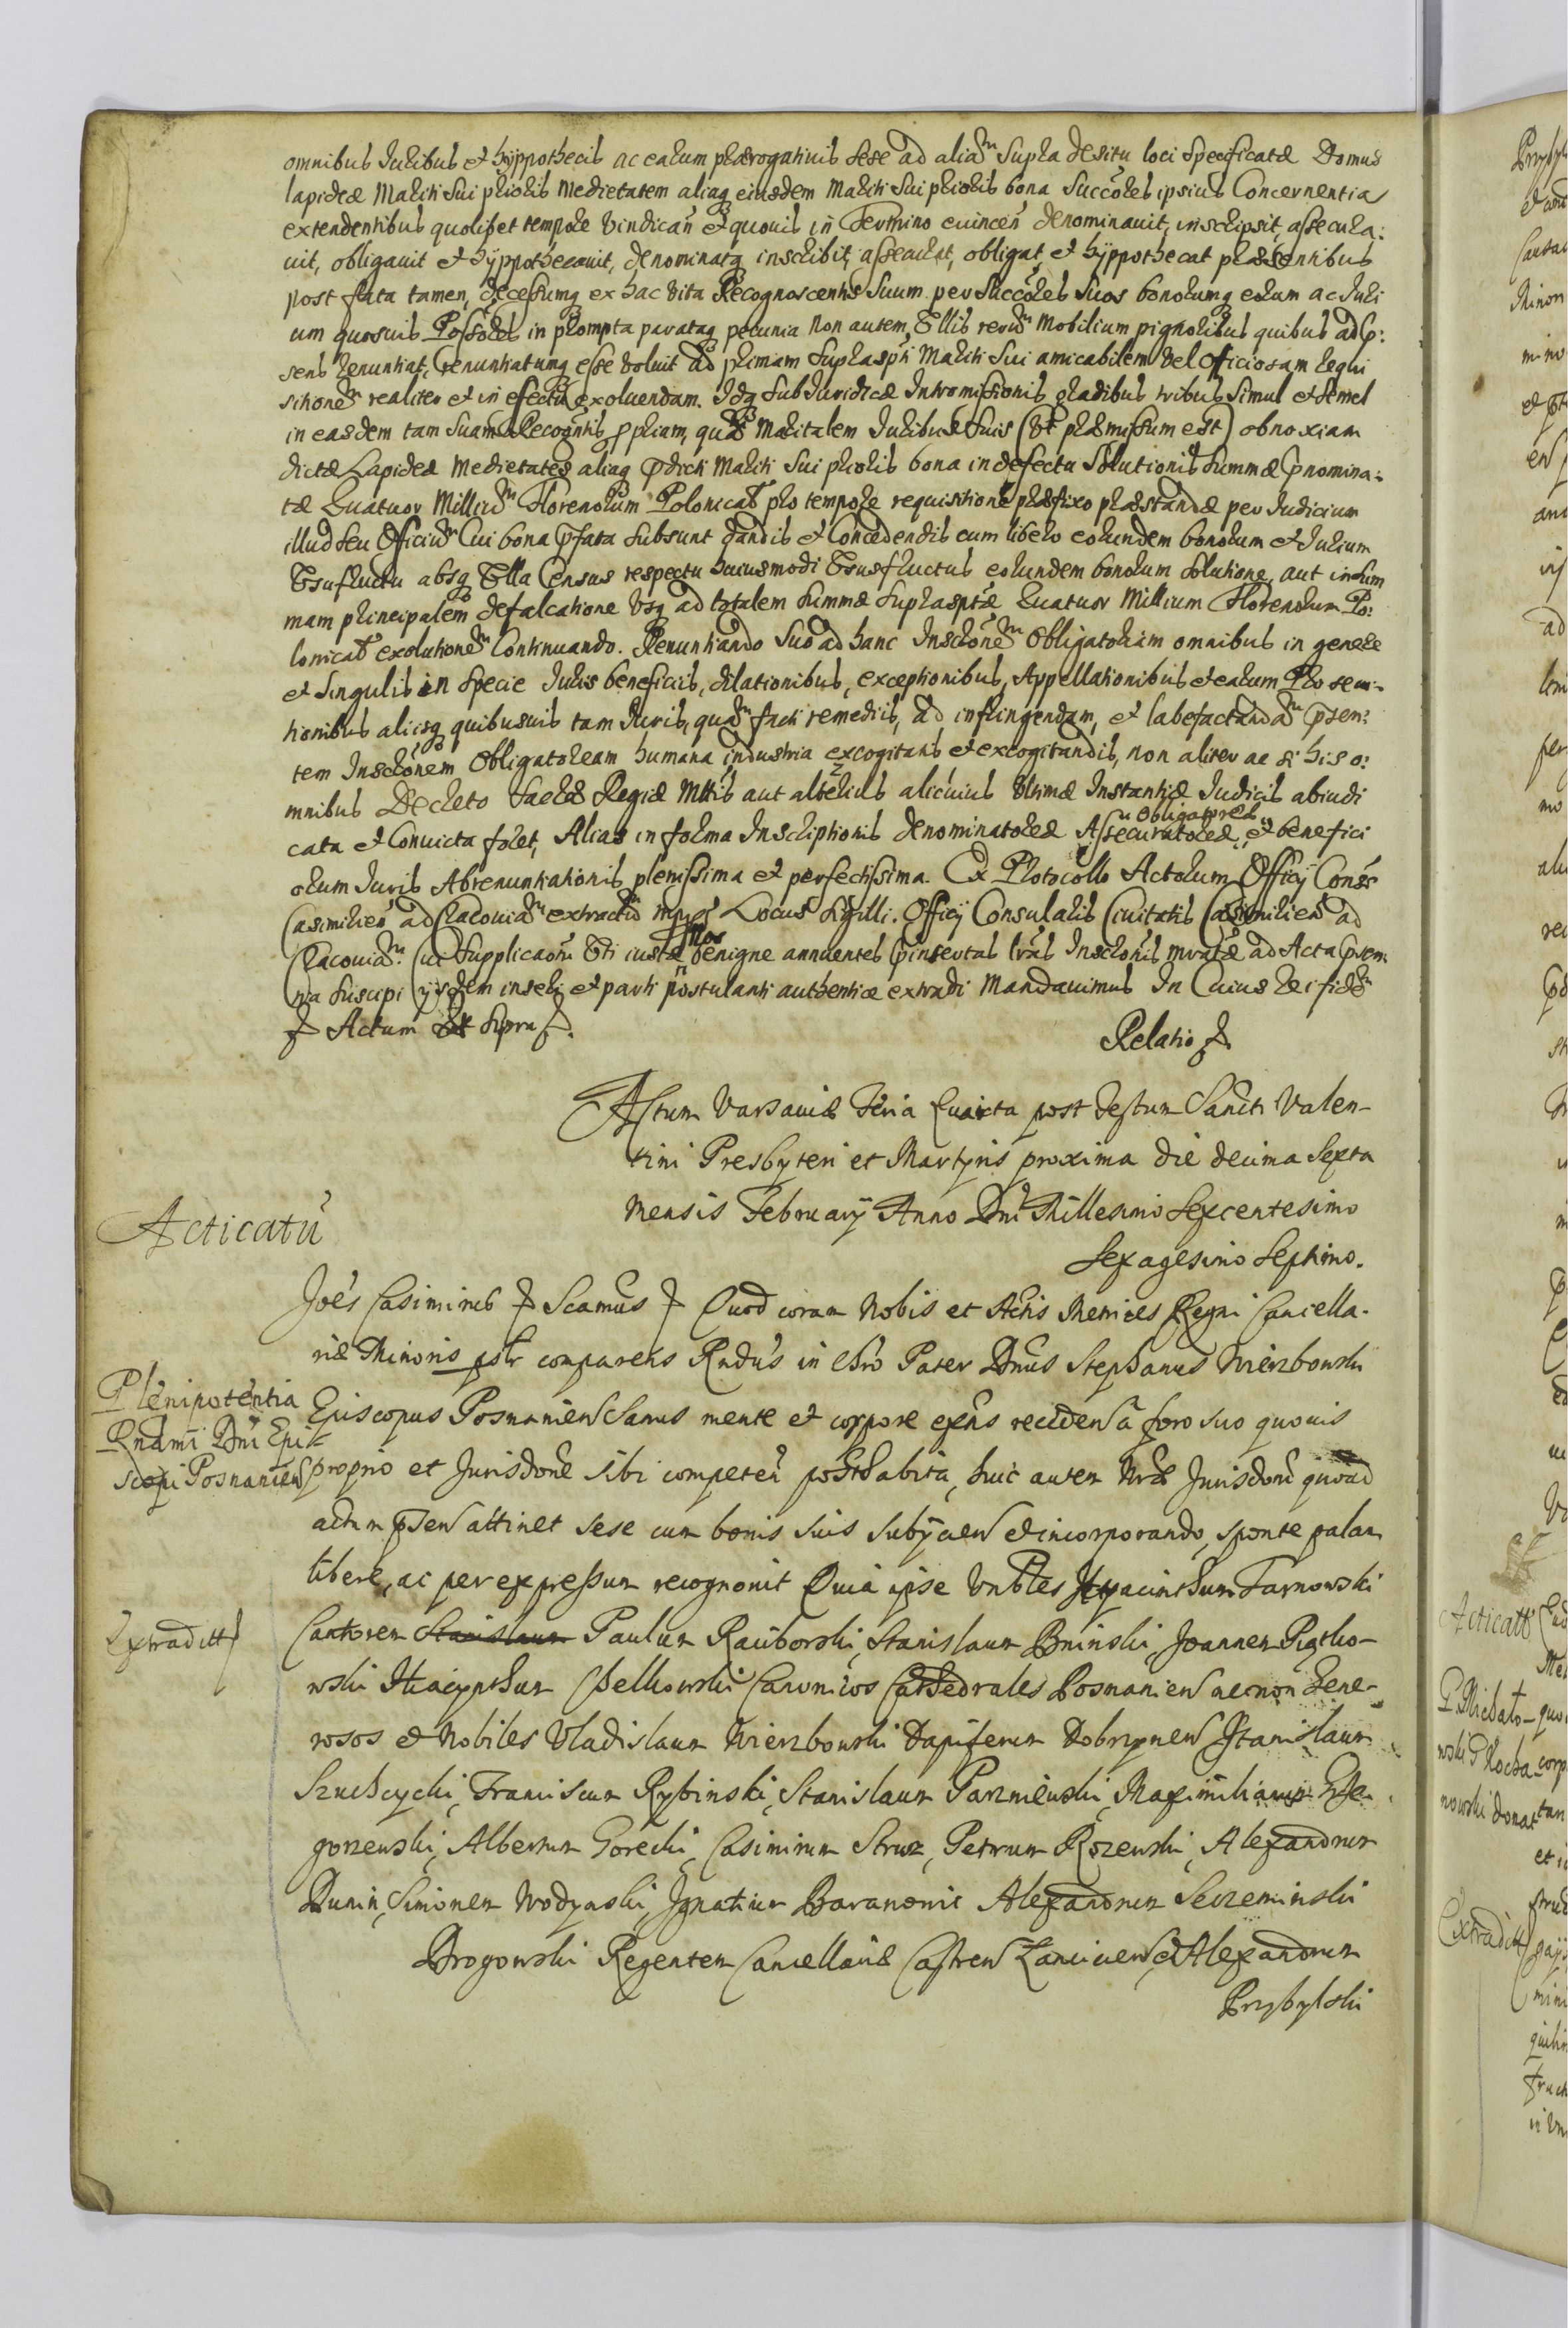 omnibus Juribus et hÿppothecis ac earum prærogativis sese ad aliã Supra de situ loci Specificatæ Domus
lapideæ Mariti Sui prioris Medietatem aliaq eiusdem Mariti Sui prioris bona Succõres ipsius Concernentia
extendentibus quolibet tempore vindicañ et quovis iñ Termino evinceñ denominavit, inscripsit, assecura:
vit, obligavit et hÿppothecavit, denominatq inscribit, assecurat, obligat, et hÿppothecat præsentibus
post fata tamen, decessumq ex hac vita Recognoscentis Suum per Succõres Suos bonorumq eorum ac Juri
um quosuis Possores in prompta parataq pecunia non autem Vllis rerũ Mobilium pignoribus quibus ad p:
sens renuntiat, renuntiatumq esse voluit ad primam Suprasp̃ti Mariti Sui amicabilem vel Officiosam requi
sitionẽ realiter et in efectu exolvendam. Idq sub Juridicæ Intromissionis gradibus tribus Simul et Semel
in easdem tam Suam Recogntis ppriam, quã Maritalem Juribus Suis (Vt præmissum est) obnoxiam
dictæ Lapideæ Medietates aliaq pdicti Mariti Sui prioris bona in defectu Solutionis Summæ pnomina:
tæ Quatuor Milliũ Florenorum Polonicał pro tempore requisitione præfixo præstandæ per Judicium
illud seu Officiũ Cui bona pfata subsunt dandis et Concedendis cum libero eorundem bonorum et Jurium
Vsufructu absq Vlla Census respectu huiusmodi Vsusfructus eorundem bonorum Solutione, aut in Sum
mam principalem defalcatione Vsq ad totalem Summæ Suprasptæ Quatuor Millium Florenorum Po:
lonicał exolutionẽ Continuando. Renuntiando Suo ad hanc Inscrõnẽ Obligatoriam omnibus in genere
et Singulis in Specie Juris beneficiis, dilationibus, exceptionibus, Appellationibus et earum Prosecu-
tionibus aliisq quibusuis tam Juris, quã facti remediis, ad infringendam, et labefactandã psen:
tem Inscrõnem Obligatoream humana industria excogitatis et excogitandis, non aliter ac si his o:
mnibus Decreto Sacræ Regiæ Mttis aut alterius alicuius Vltimæ Instantiæ Judicis abiudi
cata et Convicta foret, Alias in forma Inscriptionis denominatoreæ Assecuratoreæ, Obligatoreæ et benefici
orum Juris Abrenuntiationis plenissima et perfectissima. Ex Protocollo Actorum Officÿ Conss
Casimirieñ ad Cracoviã extractũ mpp Locus Sigilli. Officÿ Consularis Civitatis Casimirieñ ad
Cracoviã. Cui Supplicaõni Vti iustæ Nos benigne annuentes pinsertas lras Inscrõnis mvatæ ad Acta psen:
tia suscipi ÿsdem inseri et parti postulanti authentice extradi Mandavimus In Cuius rei fidẽ
& Actum Vt Supra &.
Relatio &.
Actum Varsaviæ Feria Quarta post Festum Sancti Valen-
tini Presbyteri et Martyris proxima die decima Sexta
Mensis Februarÿ Anno Dni Millesimo Sexcentesimo
Sexagesimo Septimo.
Acticatũ
Joẽs Casimirus & Scamus & Quod coram Nobis et Actis Metrices Regni Cancella-
riæ Minoris pslr comparens Rndus in Chro Pater Dnus Stephanus Wierzbowski
Plenipotentia
Rndmi Dni Epi-
scopi Posnanien
Episcopus Posnanien Sanus mente et corpore exẽns recedens a foro suo quovis
proprio et Jurisdone sibi competeñ posthabita, huic autem Nræ Jurisdoni quoad
actum psen attinet sese cum bonis suis subÿcien et incorporando, sponte palam
libere, ac per expressum recognovit Quia ipse Vnbles Hyacinthum Tarnowski
Extraditt
Cantorem Stanislaum Paulum Raciborski, Stanislaum Bninski, Joannem Piętko-
wski Hiacynthum Chelkowski Canonicos Cathedrales Posnanien necnon Gene-
rosos et Nobiles Vladislaum Wierzbowski Dapiferum Dobrzynen Stanislaum
Szuchcycki, Franciscum Rybinski, Stanislaum Parzniewski, Maximilianum
gorzewski, Albertum Gorecki, Casimirum Strus, Petrum Rozewski, Alexandrum
Dunin, Simonem Wodynski, Ignatium Baranowic Alexandrum Secreminski
Drogowski Regentem Cancellariæ Castren Lancicien et Alexandrum
Przybylski
Acticatt
P Michalo-
wski
nowski donat
Extraditt